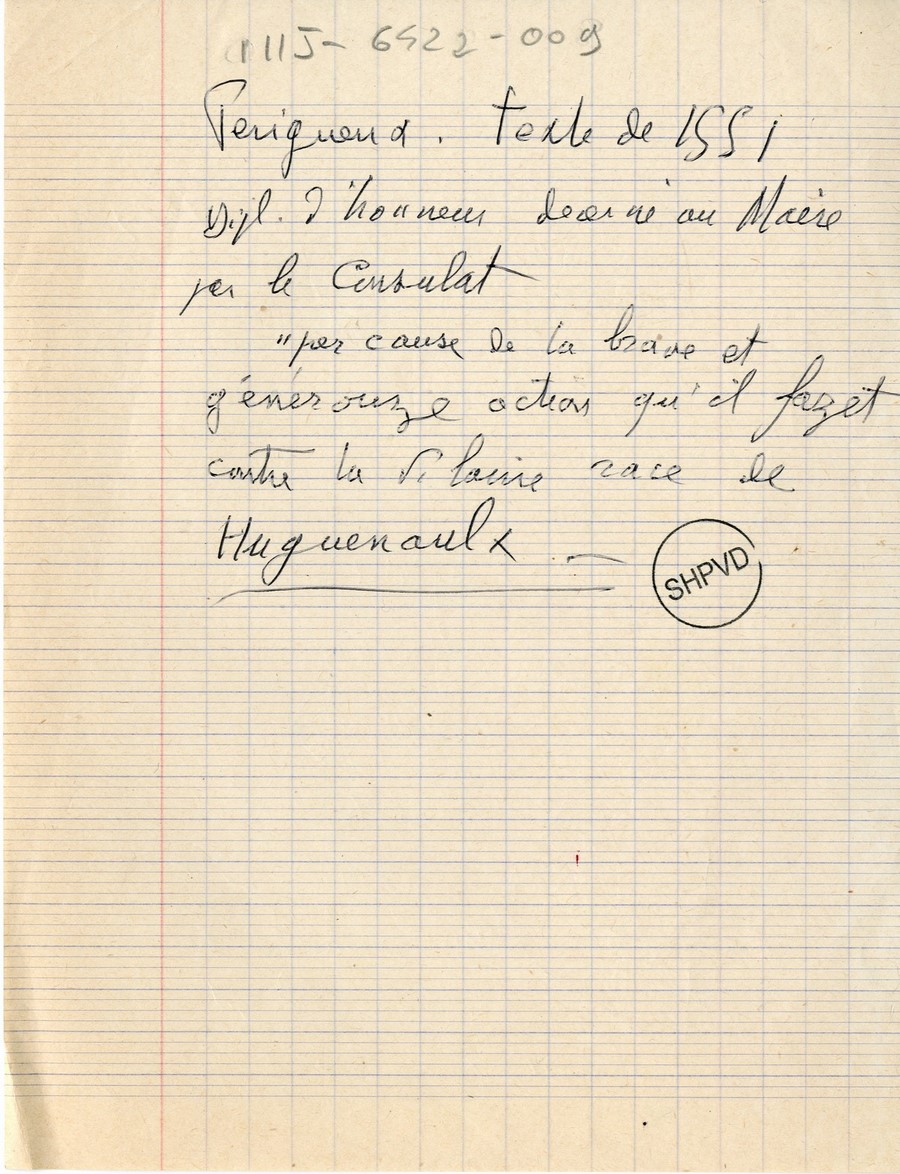 111J- 6422-009
Perigueux. texte de 1551
Dipl. d'honneur décerné au Maire
par le Consulat
"per cause de la brave et
générouze action qu'il fazet
contre la vilaine race de
Huguenaulx
SHPVD